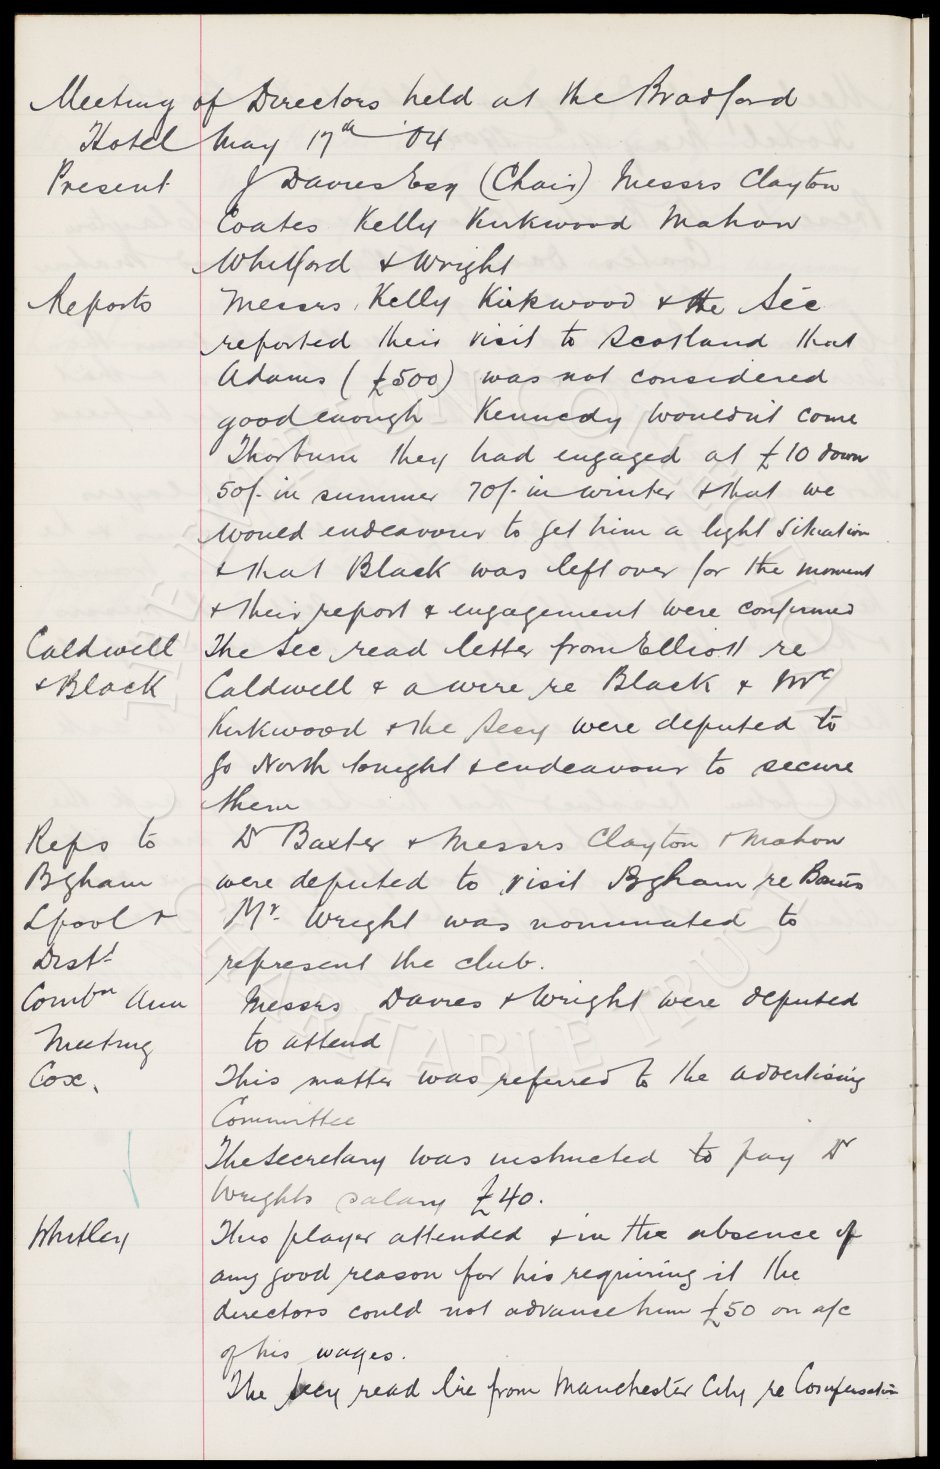 Meeting of Directors held at the Bradford
Hotel May 17th '04
Present J Davies Esq (Chair) Messrs Clayton
Coates Kelly Kirkwood Mahon
Whitford & Wright
Reports Messrs. Kelly Kirkwood & the Sec
reported their visit to Scotland that
Adams (£500) was not considered
good enough Kennedy wouldn't come
Thorburn they had engaged at £10 down
50/- in summer 70/- in winter & that we
would endeavour to get him a light situation
& that Black was left over for the moment
& their report & engagement were confirmed
Caldwell The Sec read letter from Elliott re
& Black Caldwell & a wire re Black & Mr
Kirkwood & the Secy were deputed to
go North tonight & endeavour to secure
them
Reps to Dr Baxter & Messrs Clayton & Mahon
Bgham were deputed to visit Bgham re
Lpool & Mr. Wright was nominated to
Dist. represent the club.
Combn Ann Messrs Davies & Wright were deputed
Meeting to attend
Cox. This matter was referred to the advertising
Committee
The Secretary was instructed to pay Dr
Wrights salary £40.
Whitley This player attended & in the absence of
any good reason for his requiring it the
directors could not advance him £50 on a/c
of his wages.
The Secy read from Manchester City re